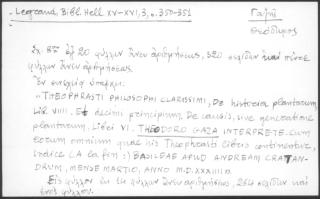 Legrand, Bibl. Hell XV-XVI, 3, σ. 350-351
Γαζῆς
Θεόδωρος
Σχ. 8ον ἐξ 20 φύλλων ἄνευ ἀριθμήσεως, 520 σελίδων καὶ
φύλλων ἄνευ ἀριθμήσεως.
Ἐν συνεχείᾳ ὑπάρχει:
"THEOPHRASTI PHILOSOPHI CLARISSIMI, De historia plantarum
Lib. VIIII. Et decimi principium. De causis, sive generatione
plantarum. Libri VI. THEODORO GAZA INTERPRETE. cum
rerum omnium quae his Theophrasti libris continentur,
indice (A la fin:) BASILEAE APUD ANDREAM CRATAN-
DRUM, MENSE MARTIO, ANNO M.D.XXXIIII».
Εἰς φύλλον ἐκ 14 φύλλων ἄνευ ἀριθμήσεως, 264 σελίδων καὶ
ἑνὸς φύλλου.